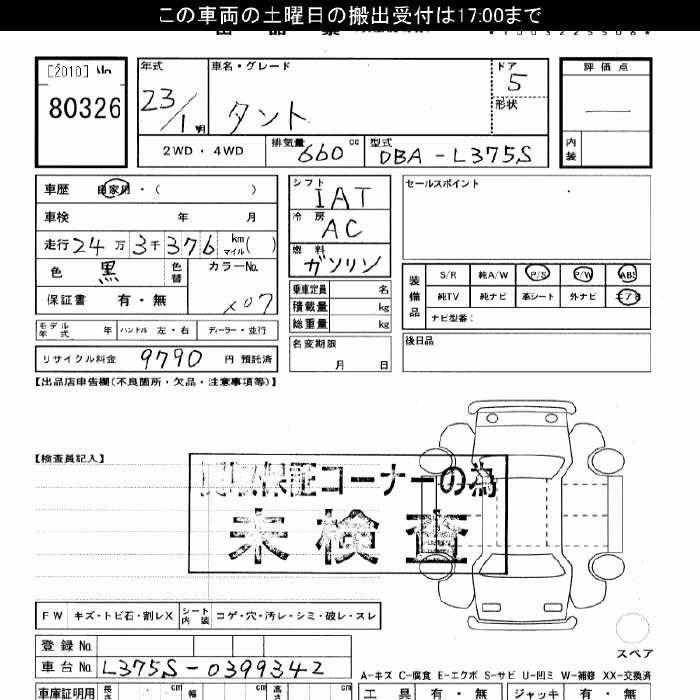 この車両の土曜日の搬出受付は17:00まで
[2010] No
80326
年式 車名・グレード ドア 評価点
23/1 タント 5
形状
2WD・4WD 排気量 660 cc 型式 DBA-L375S 内装
車歴 自家用・( )
シフト IAT
セールスポイント
車検 年 月
冷房 AC
走行 24万3千376 km マイル( )
燃料 ガソリン
色 黒 色替 カラーNo. X07
装備品 S/R 純A/W P/S P/W ABS
保証書 有・無
乗車定員 名
純TV 純ナビ 革シート 外ナビ エアB
積載量 kg
ナビ型番:
モデル年式 年 ハンドル 左・右 ディーラー・並行
総重量 kg
リサイクル料金 9790 円 預託済
名変期限 月 日
後日品
【出品店申告欄(不良箇所・欠品・注意事項等)】
【検査員記入】
保証コーナーの為
未検査
FW キズ・トビ石・割レX シート内装 コゲ・穴・汚レ・シミ・破レ・スレ
スペア
登録No.
車台No. L375S-0399342
A-キズ C-腐食 E-エクボ S-サビ U-凹ミ W-補修 XX-交換済
車庫証明用 長さ cm 幅 cm 高さ cm 工具 有・無 ジャッキ 有・無